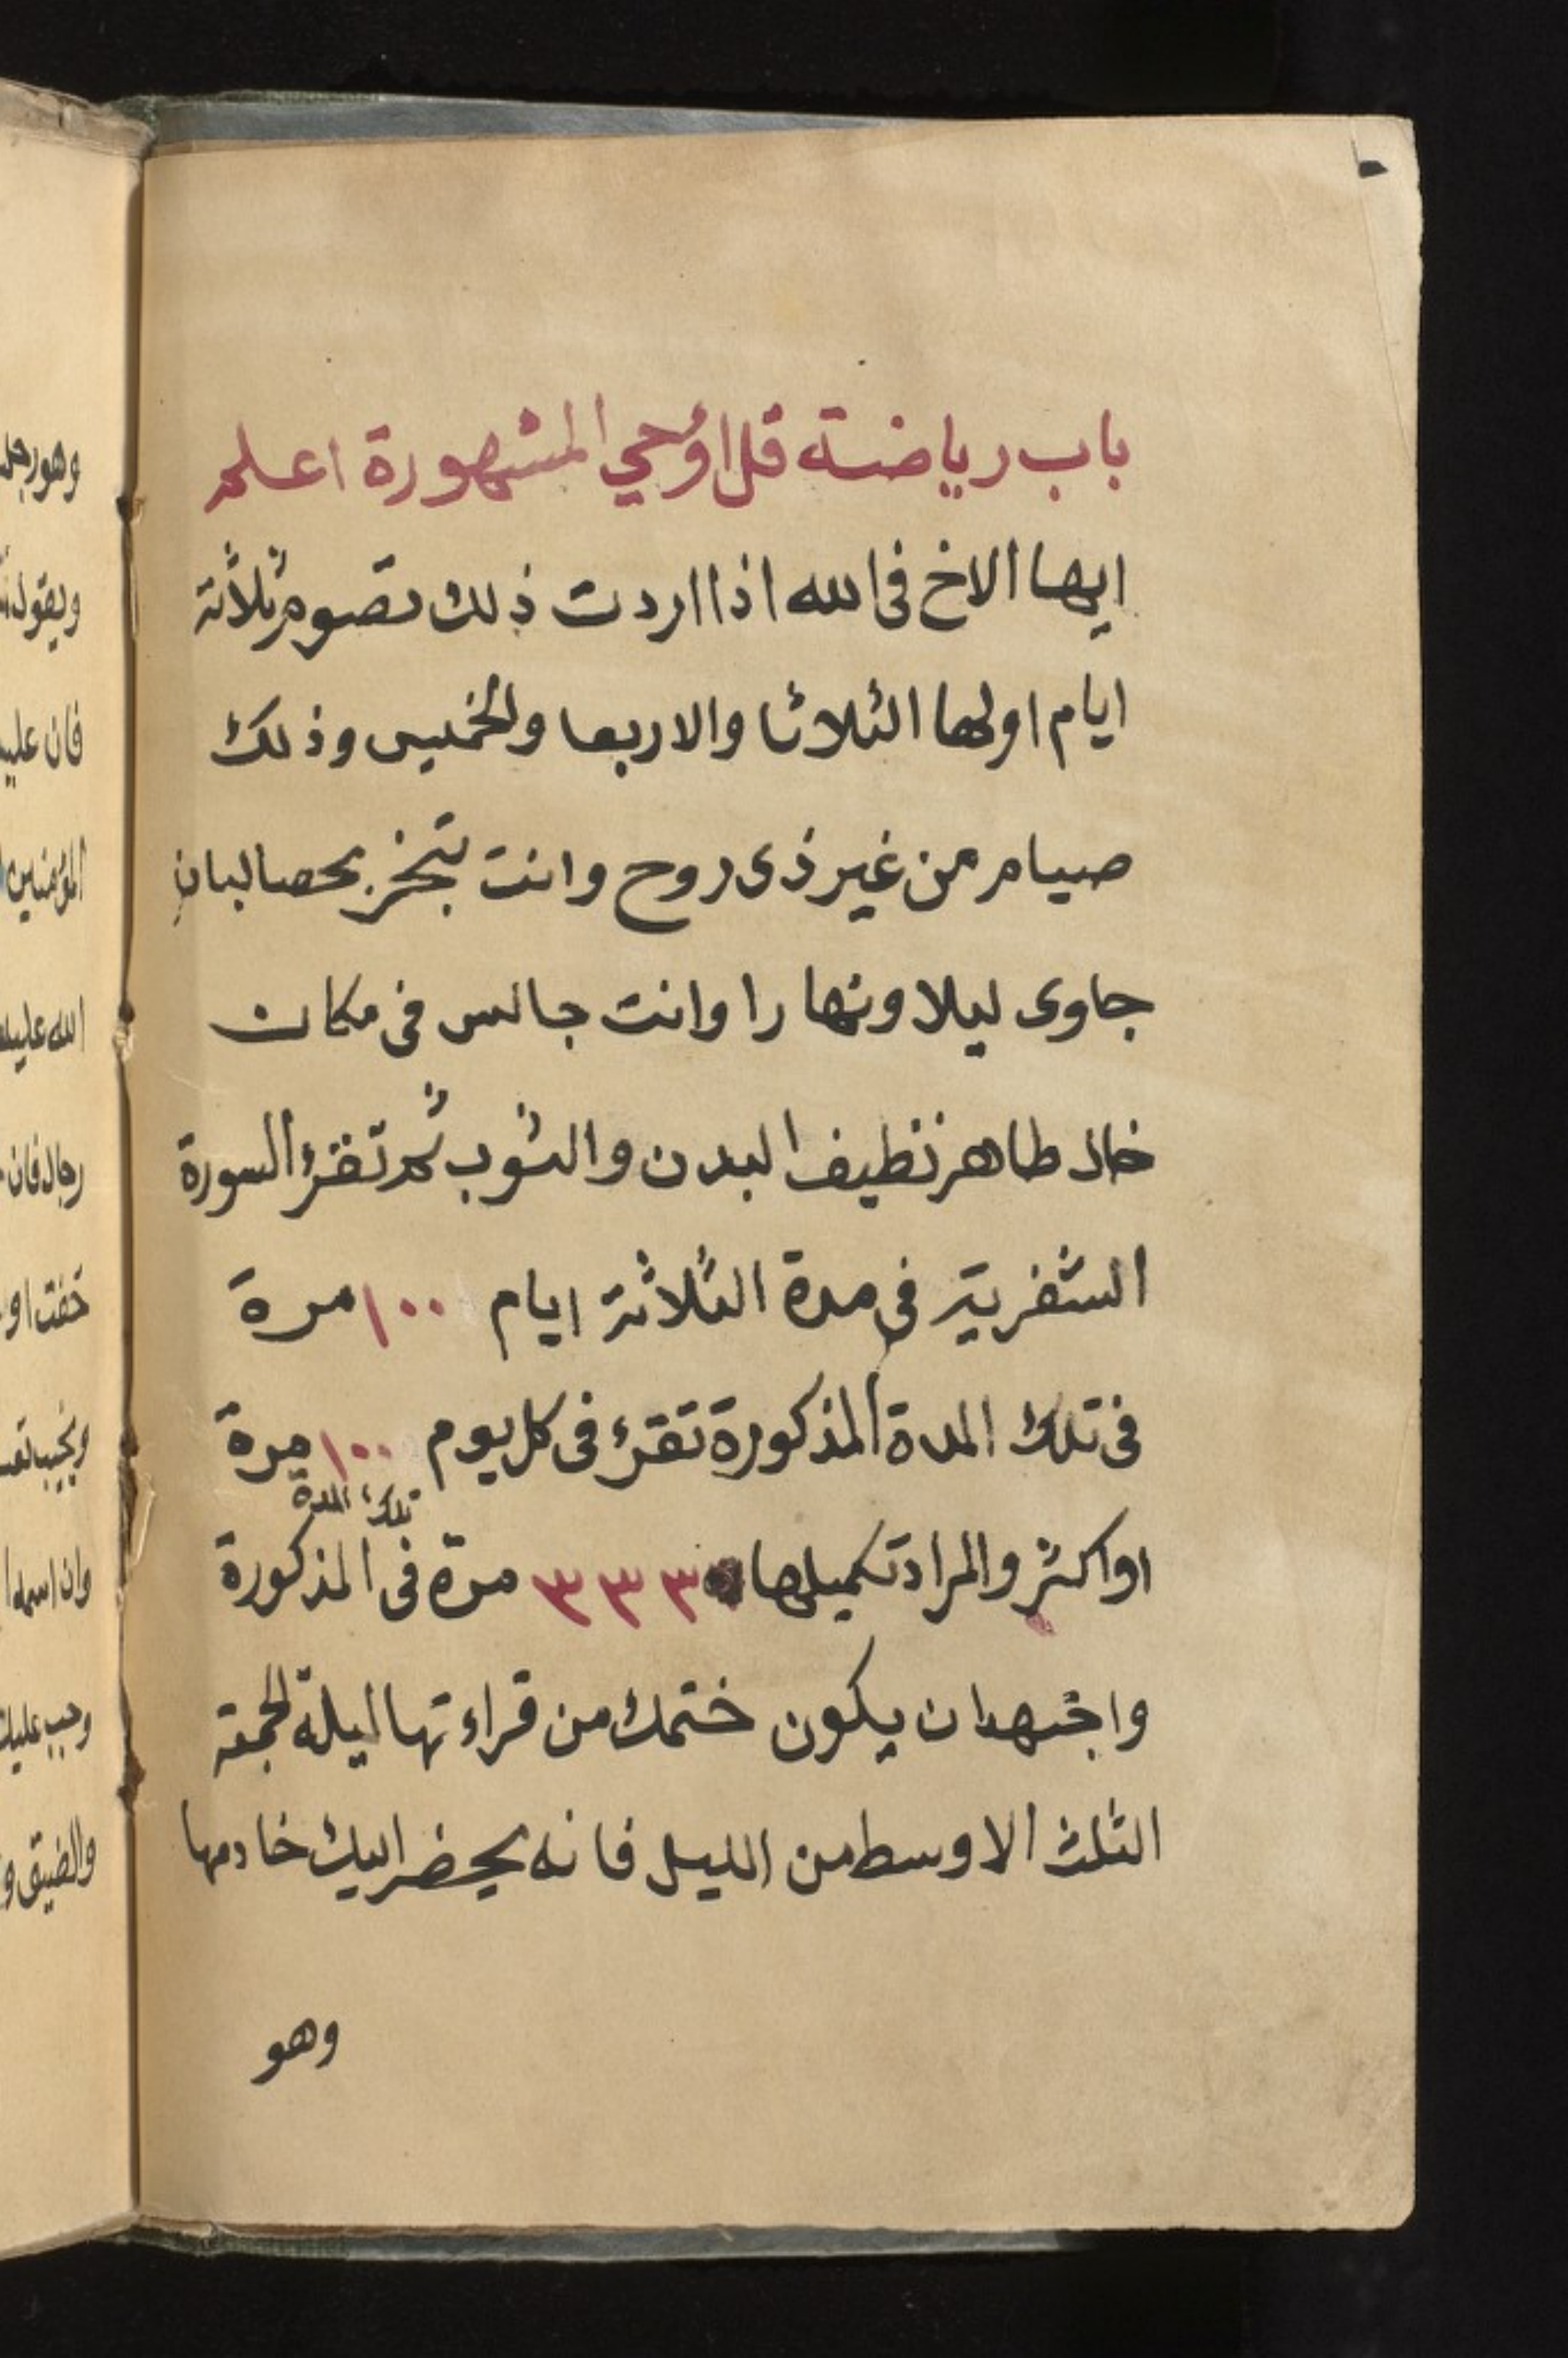 باب رياضة قل اوحي المشهورة اعلم
ايها الاخ فى الله اذا اردت ذلك تصوم ثلاثة
ايام اولها الثلاثا والاربعا والخميس وذلك
صيام من غير ذى روح وانت تبخر بحصا لبان
جاوى ليلا ونهارا وانت جالس فى مكان
خال طاهر نظيف البدن والثوب ثم تقرؤ السورة
الشفرية فى مدة الثلاثة ايام ١٠٠ مرة
فى تلك المدة المذكورة تقرؤ فى كل يوم ١٠٠ مرة
تلك المدة
او اكثر والمراد تكميلها ٣٣٣ مرة فى المذكورة
واجتهد ان يكون ختمك من قراءتها ليلة الجمعة
الثلث الاوسط من الليل فانه يحضر اليك خادمها
وهو